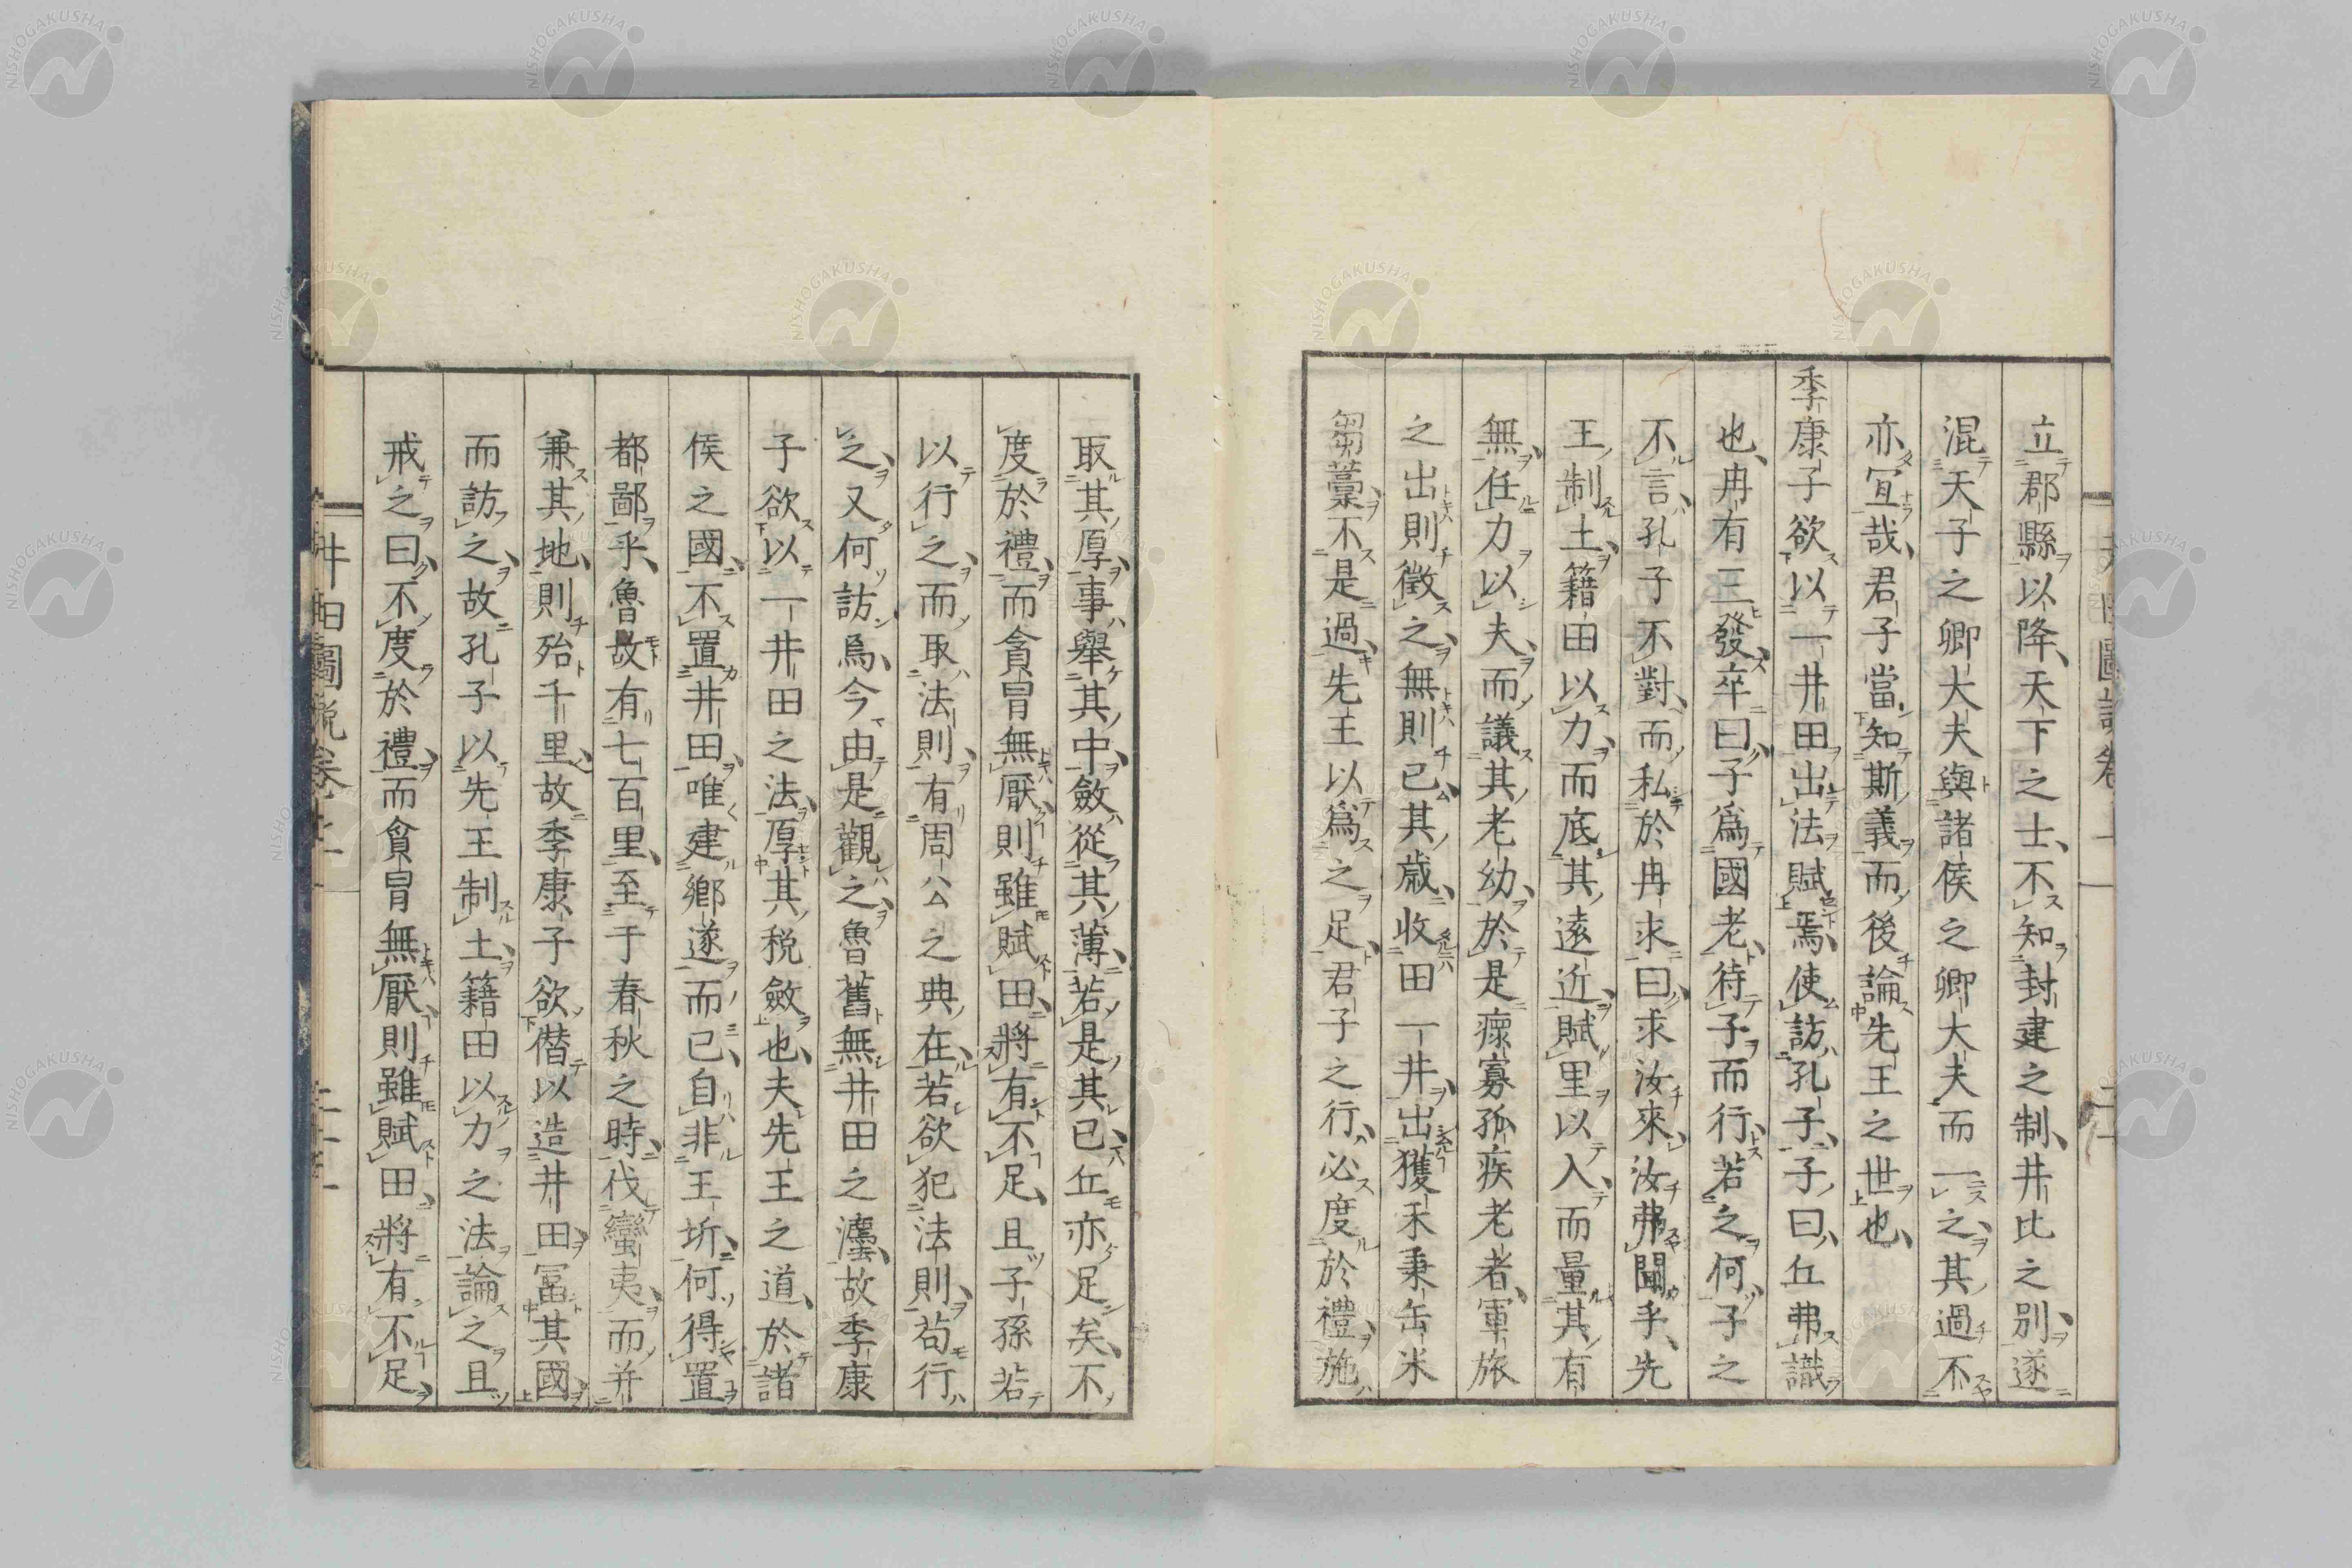 立郡縣以降、天下之士、不知封建之制、井比之別、遂
混天子之卿大夫與諸侯之卿大夫而一之、其過不
亦冝哉、君子當知斯義而後論先王之世也、
季康子欲以一井田出法賦焉、使訪孔子、子曰、丘弗識
也、冉有三發卒曰、子爲國老、待子而行、若之何子之
不言、孔子不對、而私於冉求曰、求汝來、汝弗聞乎、先
王制土、籍田以力、而底其遠近、賦里以入、而量其有
無、任力以夫、而議其老幼、於是鰥寡孤疾老者、軍旅
之出則徵之、無則已、其歲、收田一井、出獲禾秉缶米
芻藁、不是過、先王以爲之足、君子之行、必度於禮、施
取其厚、事舉其中、斂從其薄、若是其已、丘亦足矣、不
度於禮、而貪冒無厭、則雖賦田、將有不足、且子孫若
以行之、而取法則、有周公之典在、若欲犯法則、苟行
之、又何訪焉、今由是觀之、魯舊無井田之灋、故季康
子欲以一井田之法、厚其税斂也、夫先王之道、於諸
侯之國、不置井田、唯建鄉遂而已、自非王圻、何得置
都鄙乎、魯故有七百里、至于春秋之時、伐蠻夷、而并
兼其地、則殆千里、故季康子欲僭以造井田、冨其國、
而訪之、故孔子以先王制土、籍田以力之法論之、且
戒之曰、不度於禮、而貪冒無厭、則雖賦田、將有不足
井田圖説卷